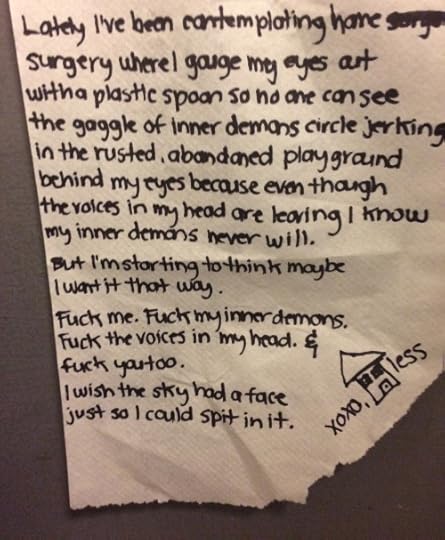 Lately I've been contemplating home surge
surgery where I gouge my eyes out
with a plastic spoon so no one can see
the gaggle of inner demons circle jerking
in the rusted, abandoned playground
behind my eyes because even though
the voices in my head are leaving I know
my inner demons never will.
But I'm starting to think maybe
I want it that way.
Fuck me. Fuck my inner demons.
Fuck the voices in my head. &
fuck you too.
I wish the sky had a face
just so I could spit in it.
xoxo, less